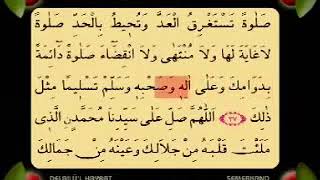 صَلٰوةً تَسْتَغْرِقُ الْعَدَّ وَتُحٖيطُ بِالْحَدِّ صَلٰوةً
لَاغَايَةَ لَهَا وَلَا مُنْتَهٰى وَلَا انْقِضَٓاءَ صَلٰوةً دَٓائِمَةً
بِدَوَامِكَ وَعَلٰٓى اٰلِهٖ وَصَحْبِهٖ وَسَلِّمْ تَسْلٖيمًا مِثْلَ
ذٰلِكَ ﴿٣٧﴾ اَللّٰهُمَّ صَلِّ عَلٰى سَيِّدِنَا مُحَمَّدٍنِ الَّذٖى
مَلَئْتَ قَلْبَهُ مِنْ جَلَالِكَ وَعَيْنَهُ مِنْ جَمَالِكَ
DELAİLÜ'L HAYRAT SEMERKAND